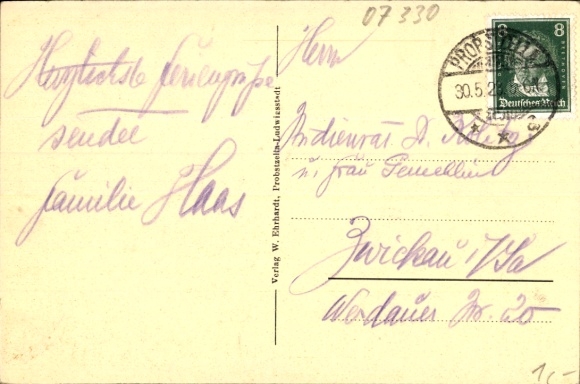 07 330
Herzlichste Feriengrüße
sendet
Familie Haas
Verlag W. Ehrhardt, Probstzella-Ludwigsstadt
Herrn
PROBSTZELLA
30.5.2
8 8
Deutsches Reich
Studienrat D.
u. Frau Gemahlin
Zwickau i/Sa
Werdauer Str. 20
1,-